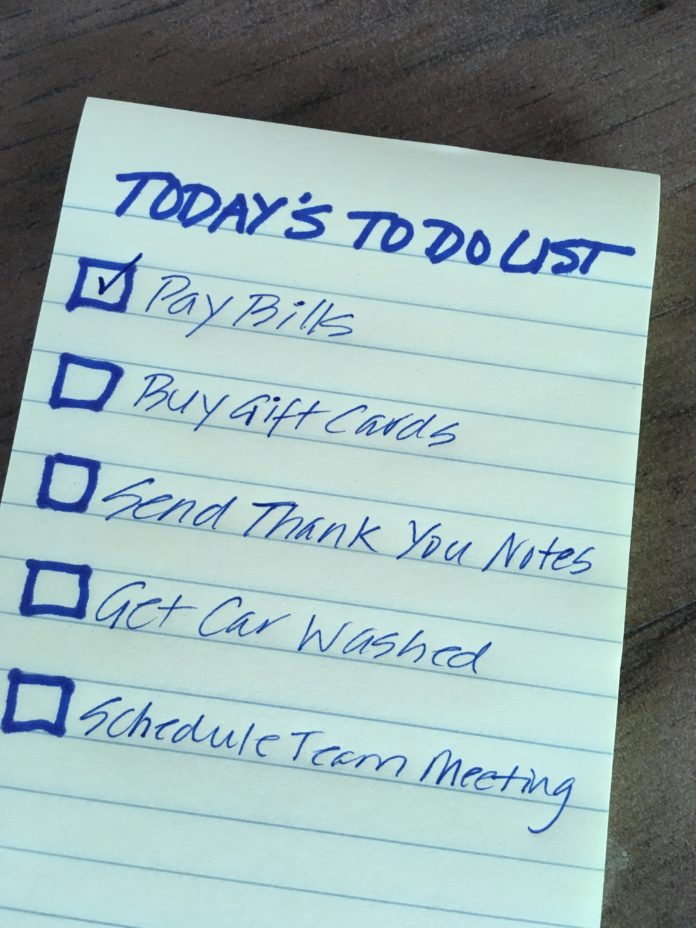 TODAY'S TO DO LIST
Pay Bills
Buy Gift Cards
Send Thank You Notes
Get Car Washed
Schedule Team Meeting